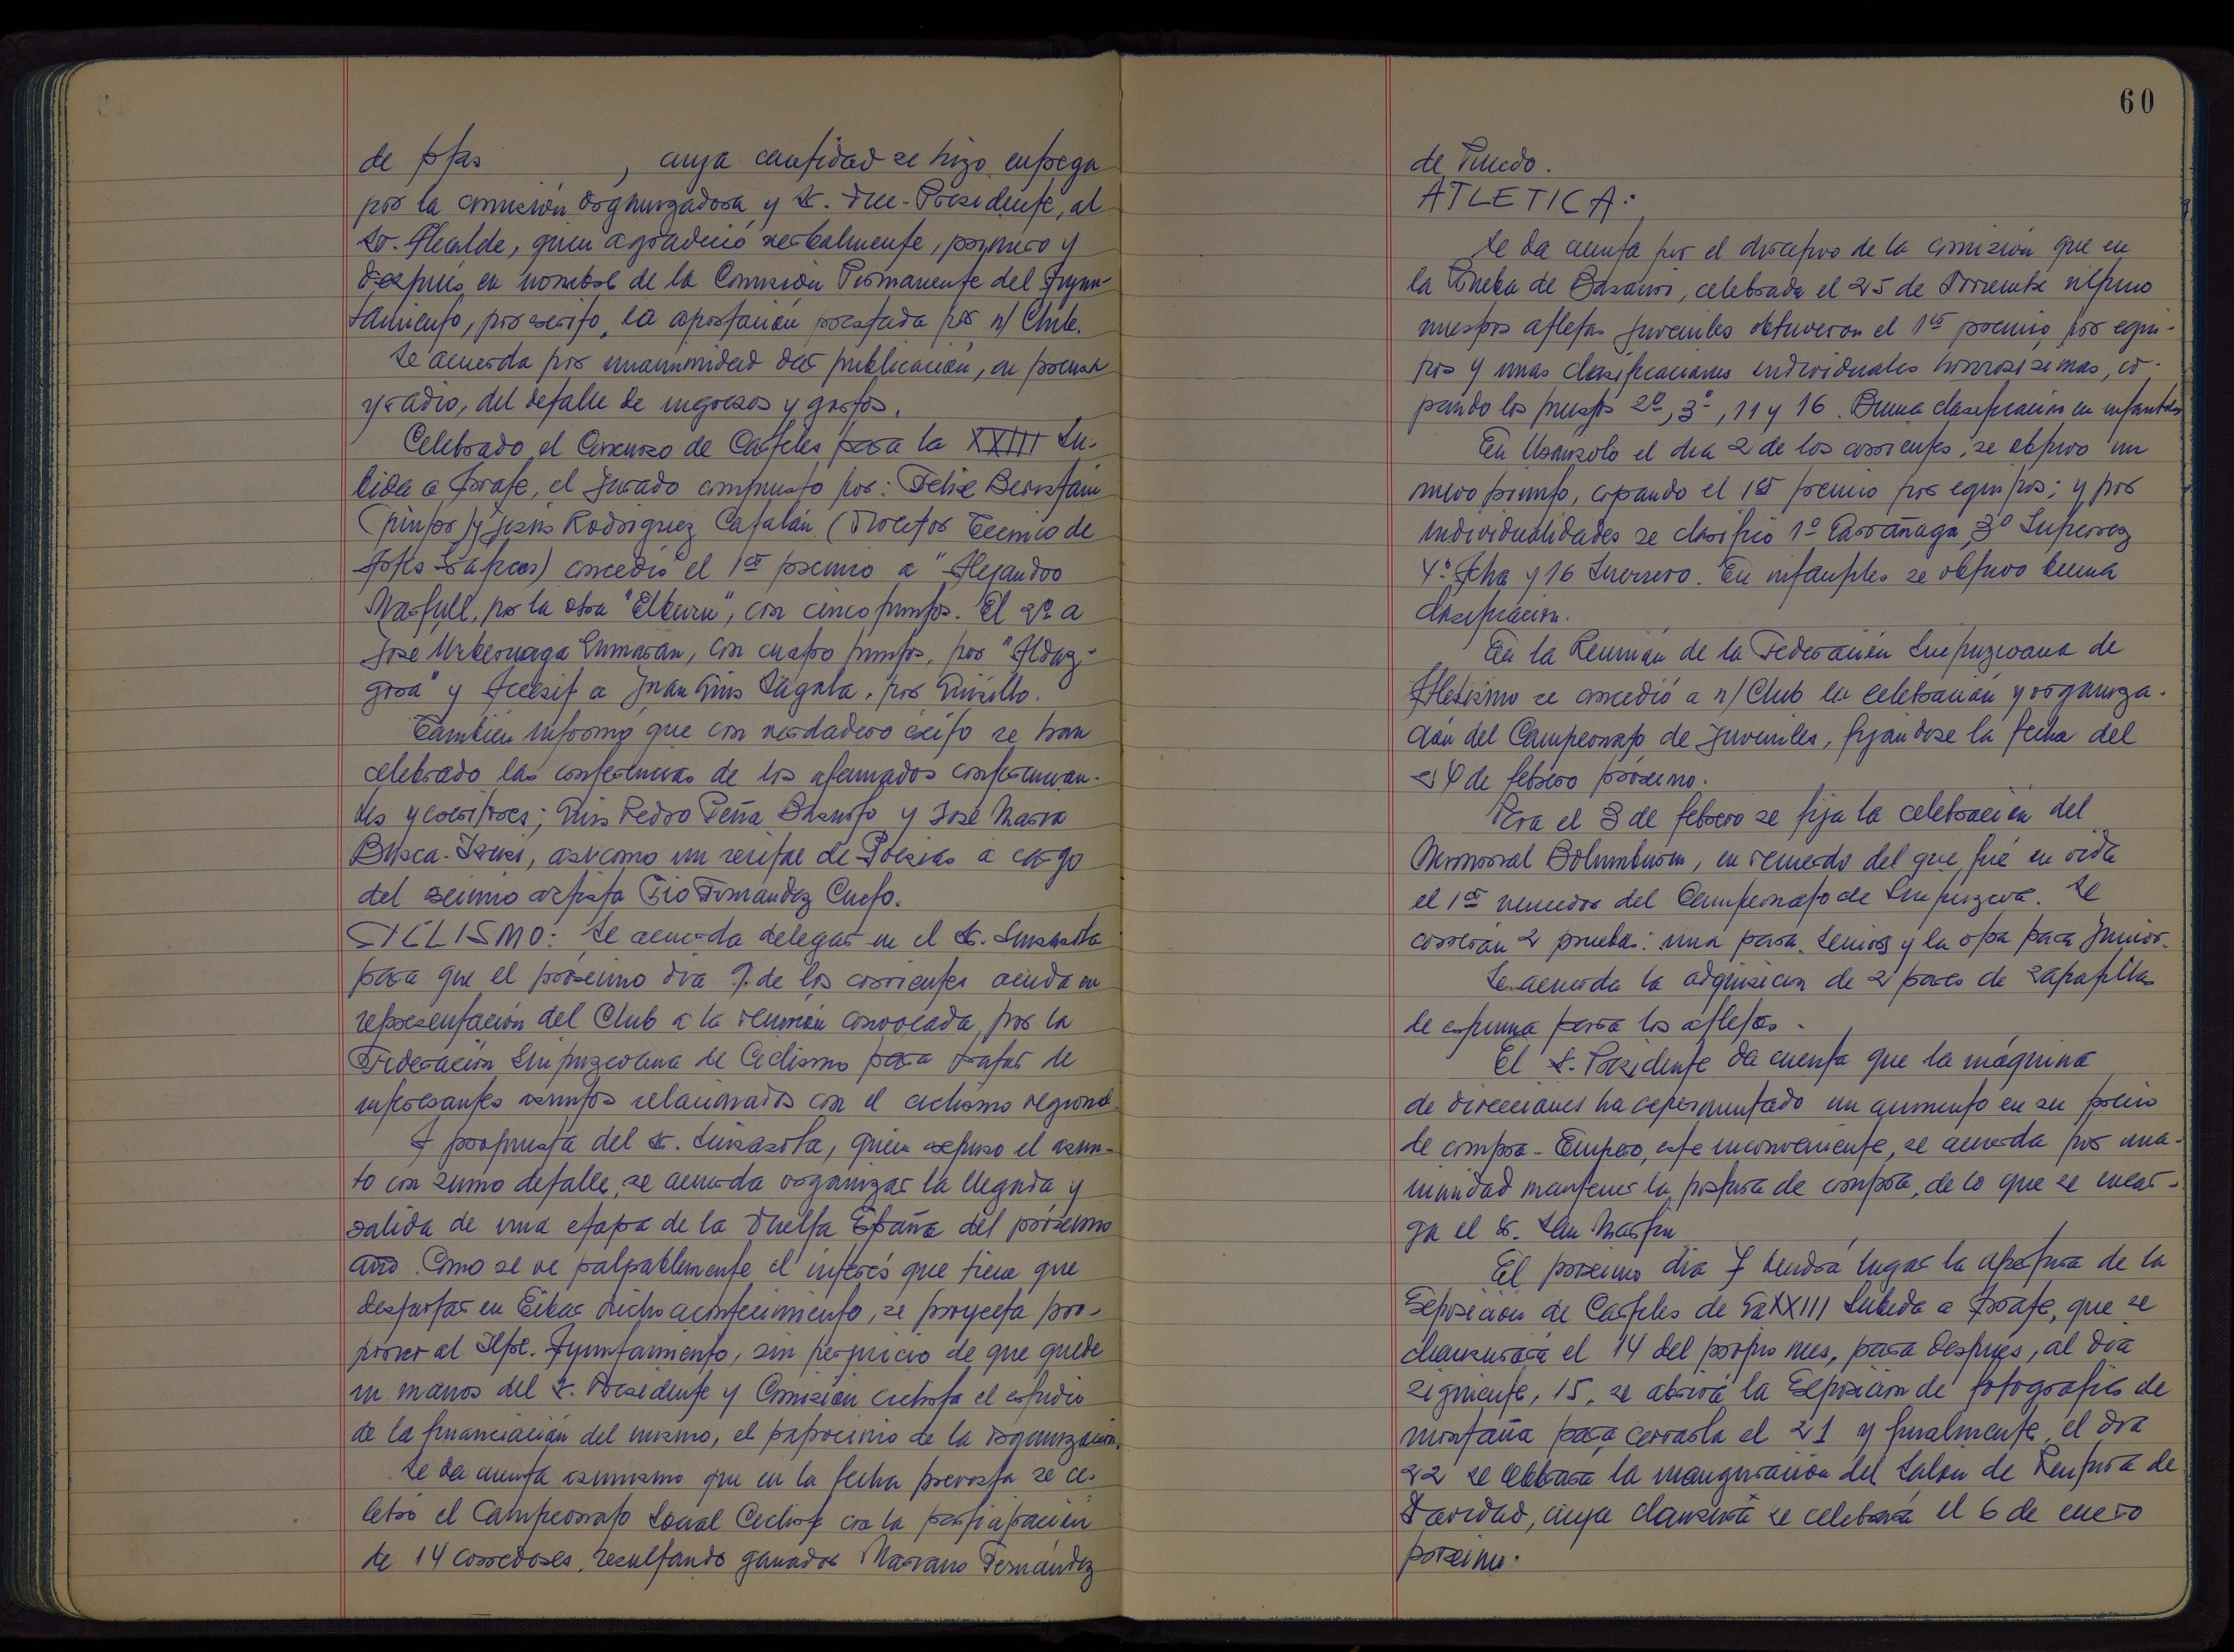 de ptas , cuya cantidad se hizo entrega
por la comisión organizadora y Sr. Vice-Presidente, al
Sr. Alcalde, quien agradeció verbalmente, primero y
después en nombre de la Comisión Permanente del Ayun-
tamiento, por escrito, la aportación prestada por n/ Club.
Se acuerda por unanimidad dar publicación, en prensa
y radio, del detalle de ingresos y gastos.
Celebrado el Concurso de Carteles para la XXIII Su-
bida a Arrate, el Jurado compuesto por: Felix Beristain
(pintor) y Jesús Rodriguez Catalán (Director Tecnico de
Artes Gráficas) concedió el 1er premio a "Alejandro
Martull, por la obra "Elburu", con cinco puntos. El 2º a
Jose Urberuaga Gumaran, con cuatro puntos, por "Aldaz-
gora" y Accesit a Juan Luis Zágala, por
Tambien informó que con verdadero éxito se han
celebrado las conferencias de los afamados conferencian-
tes y escritores; Luis Pedro Peña Santiago y José Maria
Busca-Isusi, asi como un recital de Poesias a cargo
del eximio artista Tio Fernandez Cueto.
CICLISMO: Se acuerda delegar en el Sr. Guisasola
para que el próximo dia 9 de los corrientes acuda en
representación del Club a la reunión convocada, por la
Federación Guipuzcoana de Ciclismo para tratar de
interesantes asuntos relacionados con el ciclismo regional.
A propuesta del Sr. Guisasola, quien expuso el asun-
to con sumo detalle, se acuerda organizar la llegada y
salida de una etapa de la Vuelta España del próximo
año. Como se ve palpablemente el interés que tiene que
despertar en Eibar dicho acontecimiento, se proyecta pro-
poner al Iltre. Ayuntamiento, sin perjuicio de que quede
en manos del Sr. Presidente y Comisión ciclista el estudio
de la financiación del mismo, el patrocinio de la organización.
Se da cuenta asimismo que en la fecha prevista se ce-
lebró el Campeonato Social Ciclista con la participación
de 14 corredores, resultando ganador Mariano Fernández
60
de Pinedo.
ATLETICA:
Se da cuenta por el directivo de la comisión que en
la Prueba de Basauri, celebrada el 25 de Noviembre último
nuestros atletas juveniles obtuvieron el 1er premio por equi-
pos y unas clasificaciones individuales honrosisimas, co-
pando los puestos 2º, 3º, 11 y 16. Buena clasificación en infantiles
En Usansolo el dia 2 de los corrientes, se obtuvo un
nuevo triunfo, copando el 1er premio por equipos; y por
individualidades se clasificó 1º Larrañaga, 3º Gutierrez
4º Acha y 16 Guerrero. En infantiles se obtuvo buena
clasificación.
En la Reunión de la Federación Guipuzcoana de
Atletismo se concedió a n/ Club la celebración y organiza-
ción del Campeonato de Juveniles, fijándose la fecha del
24 de febrero próximo.
Para el 3 de febrero se fija la celebración del
Memorial Bolumburu, en recuerdo del que fué en vida
el 1er vencedor del Campeonato de Guipuzcoa. Se
correrán 2 pruebas: una para Seniors y la otra para Junior.
Se acuerda la adquisicion de 2 pares de zapatillas
de espuma para los atletas.
El Sr. Presidente da cuenta que la máquina
de direcciones ha experimentado un aumento en su precio
de compra. Empero, este inconveniente, se acuerda por una-
nimidad mantener la postura de compra, de lo que se encar-
ga el Sr. San Martin
El próximo dia 7 tendrá lugar la apertura de la
Exposición de Carteles de la XXIII Subida a Arrate, que se
clausurará el 14 del propio mes, para después, al dia
siguiente, 15, se abrirá la Exposición de fotografias de
montaña para cerrarla el 21 y finalmente, el dia
22 se celebrará la inauguración del Salón de Pintura de
Navidad, cuya clausura se celebrará el 6 de enero
próximo.